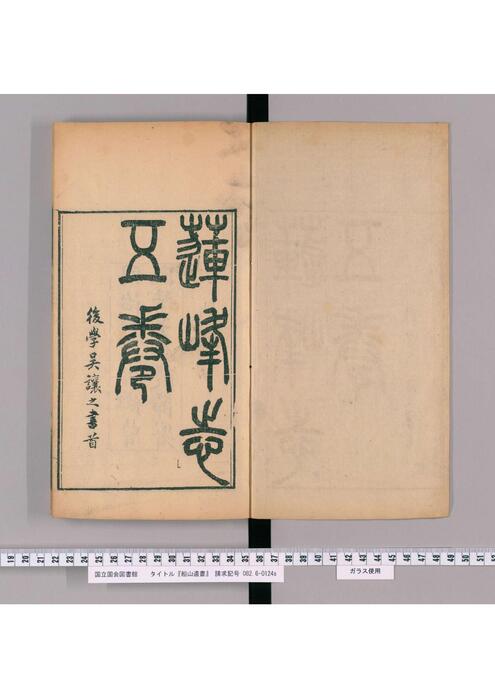 蓮峰志
五卷
後學吳讓之書首
19 20 21 22 23 24 25 26 27 28 29 30 31 32 33 34 35 36 37 38 39 40 41 42 43 44 45 46 47 48 49 50 51 52
国立国会図書館 タイトル『船山遺書』 請求記号 082 6-0124s
ガラス使用